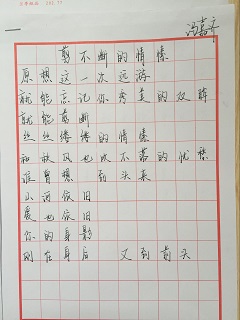 冯嘉齐
剪不断的情愫
原想这一次远游
就能忘记你秀美的双眸
就能剪断
丝丝缕缕的情愫
和秋风也吹不落的忧愁
谁曾想 到头来
山河依旧
爱也依旧
你的身影
刚在身后 又到前头